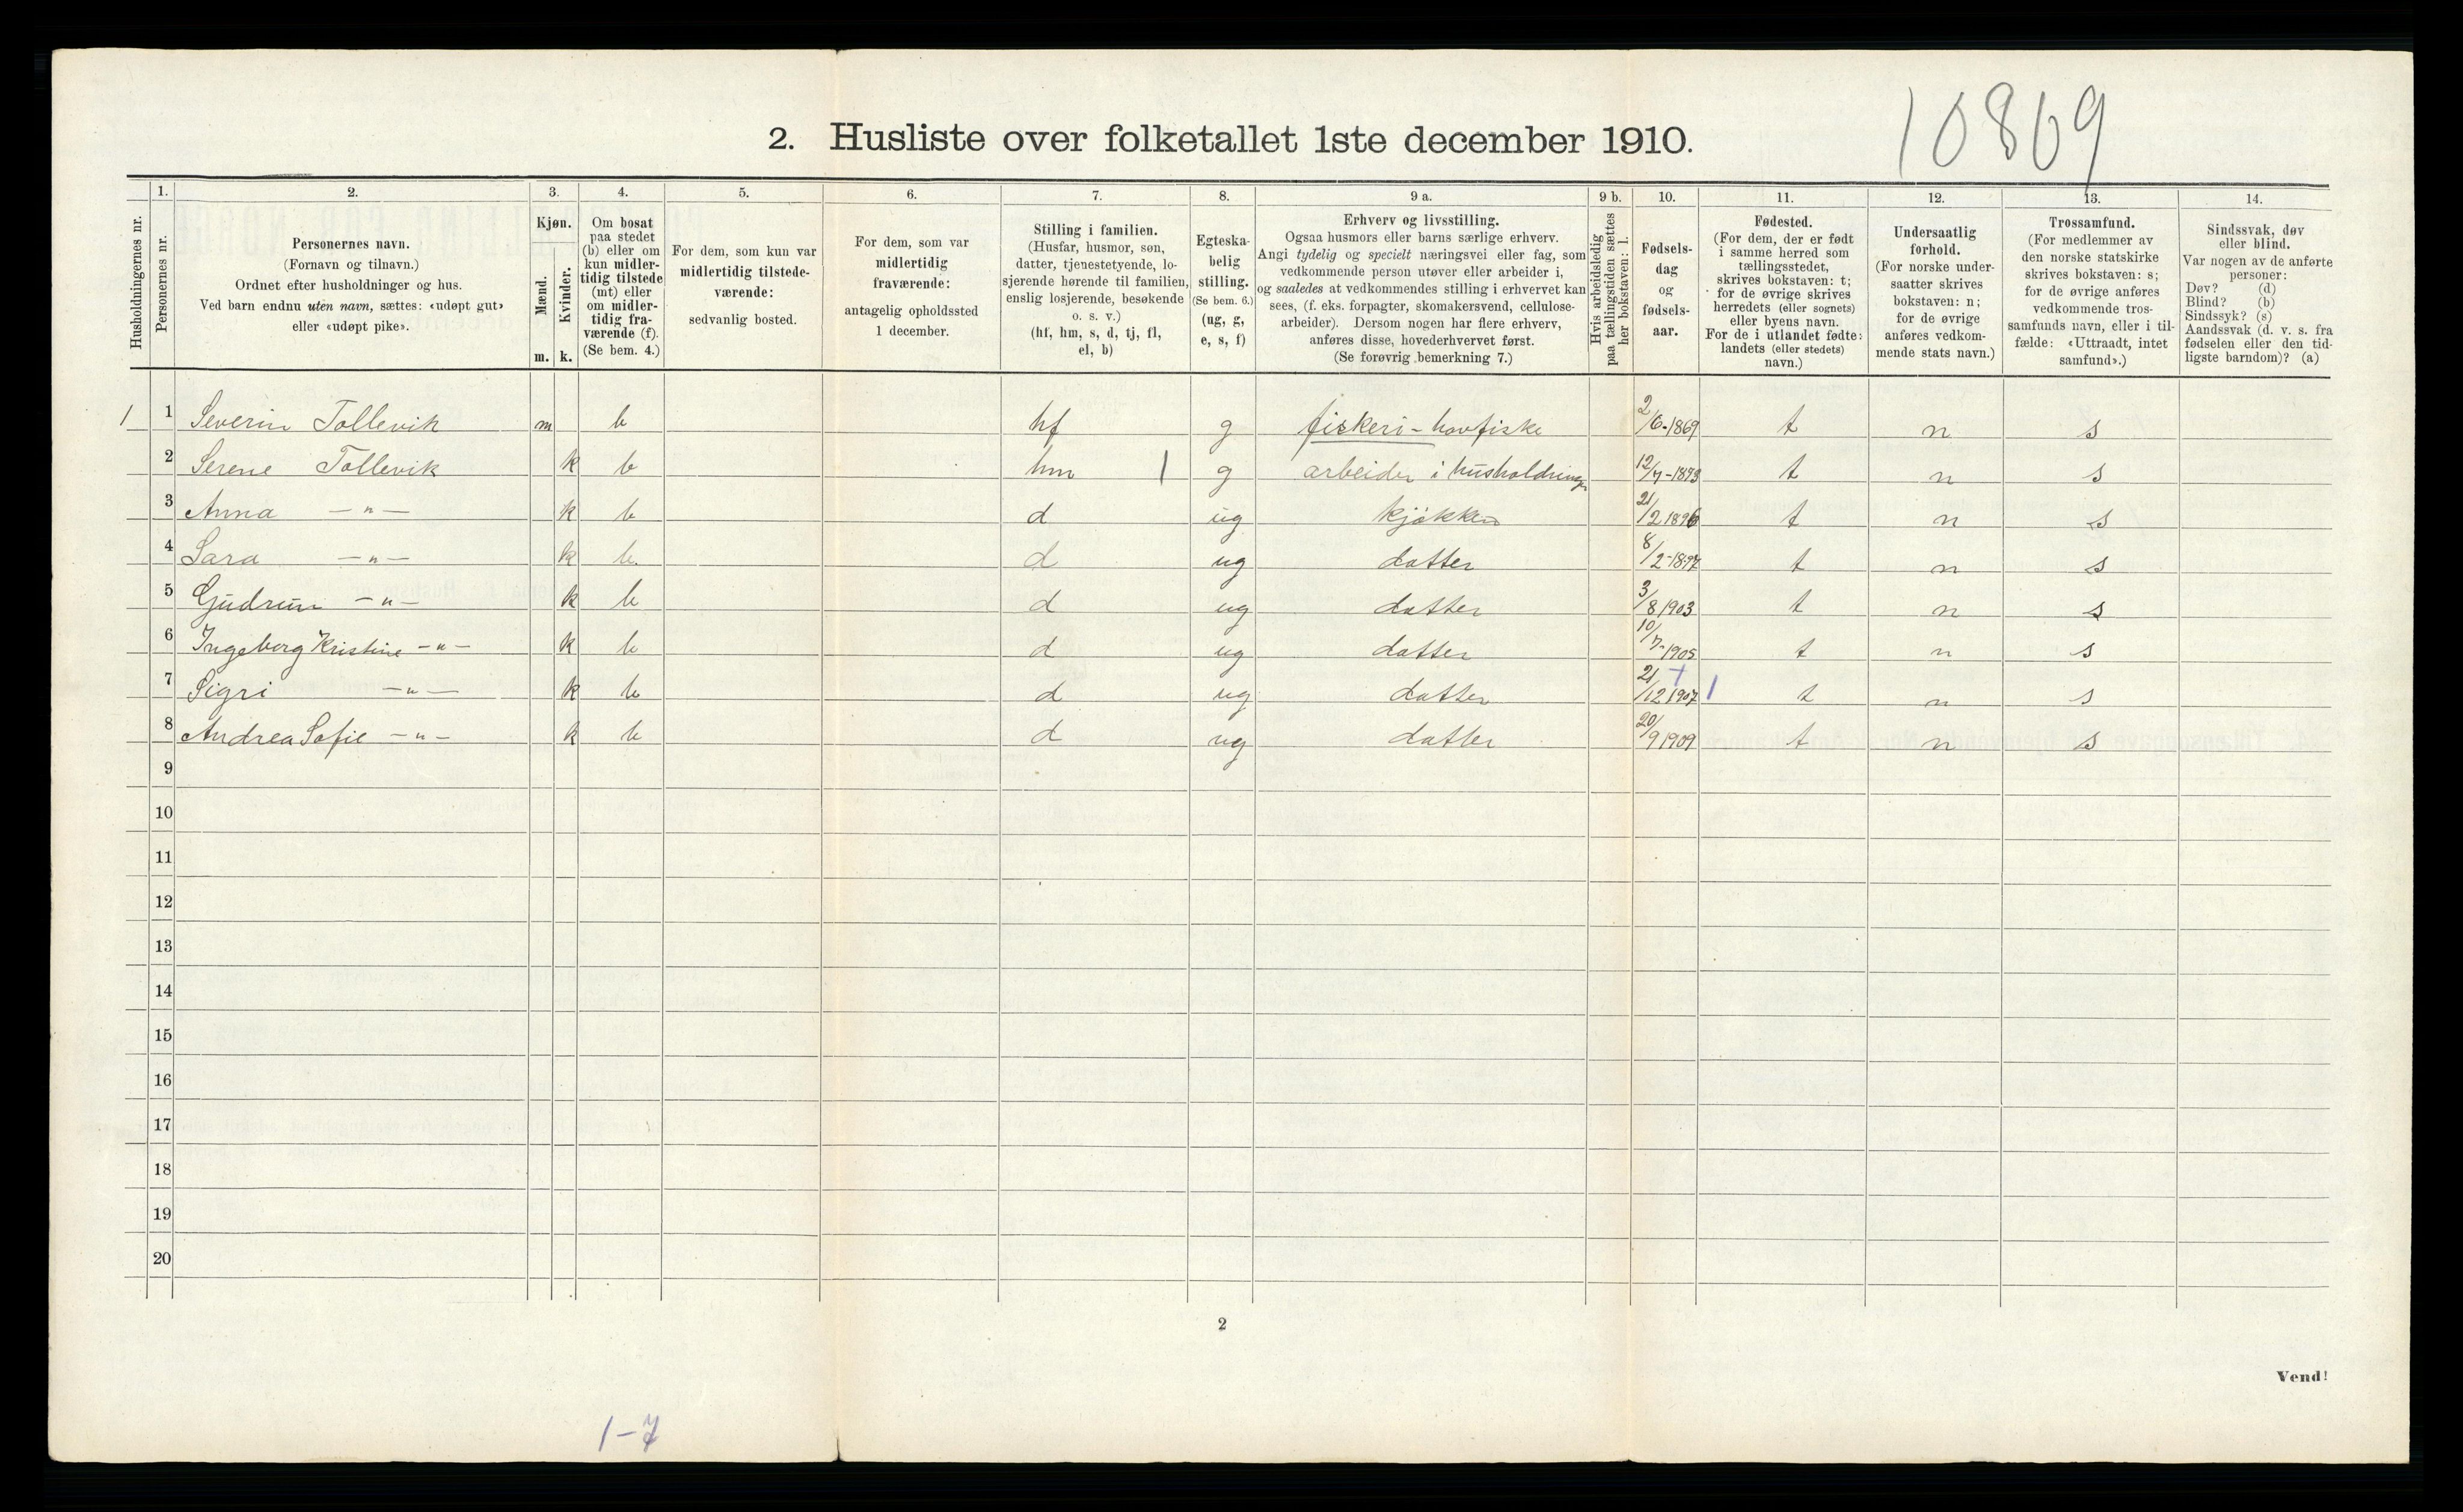 10869
2. Husliste over folketallet 1ste december 1910.
Husholdningernes nr.
1.
Personernes nr.
2.
Personernes navn.
(Fornavn og tilnavn.)
Ordnet efter husholdninger og hus.
Ved barn endnu uten navn, sættes: «udøpt gut»
eller «udøpt pike».
3.
Kjøn.
Mænd.
m.
Kvinder.
k.
4.
Om bosat
paa stedet
(b) eller om
kun midler-
tidig tilstede
(mt) eller
om midler-
tidig fra-
værende (f).
(Se bem. 4.)
5.
For dem, som kun var
midlertidig tilstede-
værende:
sedvanlig bosted.
6.
For dem, som var
midlertidig
fraværende:
antagelig opholdssted
1 december.
7.
Stilling i familien.
(Husfar, husmor, søn,
datter, tjenestetyende, lo-
sjerende hørende til familien,
enslig losjerende, besøkende
o. s. v.)
(hf, hm, s, d, tj, fl,
el, b)
8.
Egteska-
belig
stilling.
(Se bem. 6.)
(ug, g,
e, s, f)
9 a.
Erhverv og livsstilling.
Ogsaa husmors eller barns særlige erhverv.
Angi tydelig og specielt næringsvei eller fag, som
vedkommende person utøver eller arbeider i,
og saaledes at vedkommendes stilling i erhvervet kan
sees, (f. eks. forpagter, skomakersvend, cellulose-
arbeider). Dersom nogen har flere erhverv,
anføres disse, hovederhvervet først.
(Se forøvrig bemerkning 7.)
9 b.
Hvis arbeidsledig
paa tællingstiden sættes
her bokstaven: l.
10.
Fødsels-
dag
og
fødsels-
aar.
11.
Fødested.
(For dem, der er født
i samme herred som
tællingsstedet,
skrives bokstaven: t;
for de øvrige skrives
herredets (eller sognets)
eller byens navn.
For de i utlandet fødte:
landets (eller stedets)
navn.)
12.
Undersaatlig
forhold.
(For norske under-
saatter skrives
bokstaven: n;
for de øvrige
anføres vedkom-
mende stats navn.)
13.
Trossamfund.
(For medlemmer av
den norske statskirke
skrives bokstaven: s;
for de øvrige anføres
vedkommende tros-
samfunds navn, eller i til-
fælde: «Uttraadt, intet
samfund».)
14.
Sindssvak, døv
eller blind.
Var nogen av de anførte
personer:
Døv? (d)
Blind? (b)
Sindssyk? (s)
Aandssvak (d. v. s. fra
fødselen eller den tid-
ligste barndom)? (a)
1 1 Severin Tollevik m b hf g fiskeri - havfiske 2/6-1869 t n s
2 Serene Tollevik k b hm 1 g arbeider i husholdningen 12/7-1873 t n s
3 Anna -"- k b d ug kjøkken 21/2 1896 t n s
4 Sara -"- k b. d ug datter 8/2-1897 t n s
5 Gudrun -"- k b d ug datter 3/8 1903 t n s
6 Ingeborg Kristine -"- k b d ug datter 10/7-1905 t n s
7 Sigri -"- k b d ug datter 21/12 1907 1 t n s
8 Andrea Sofie -"- k b d ug datter 20/9 1909 t n s
9
10
11
12
13
14
15
16
17
18
19
20
2
Vend!
1-7